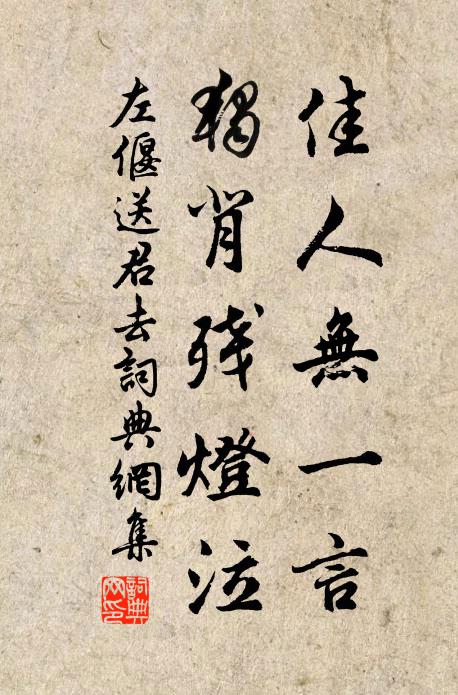 佳人無一言
獨背残燈泣
左偃送君去詞典網集
詞典
网印